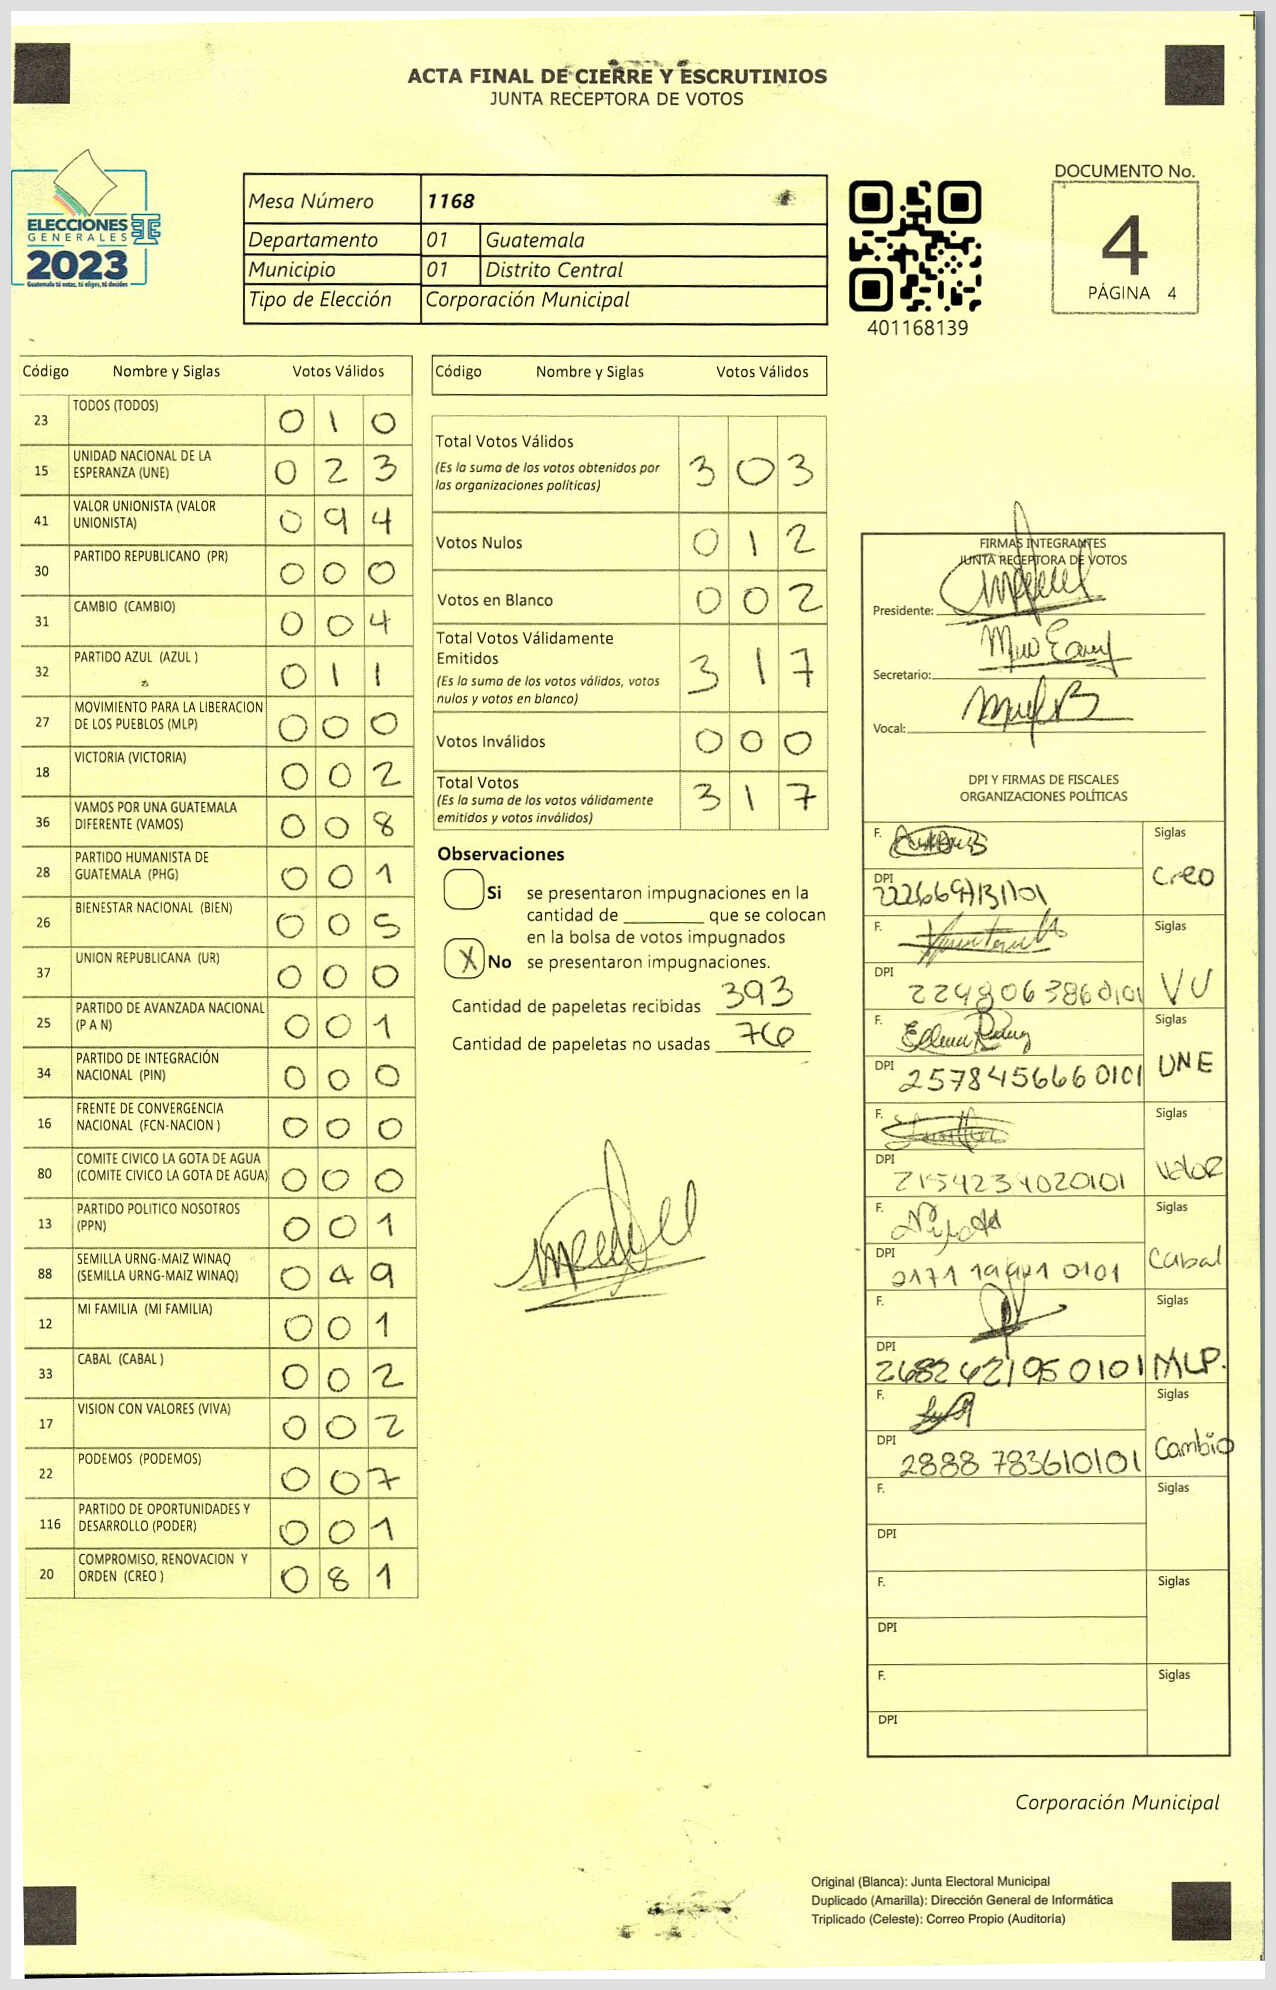 ACTA FINAL DE CIERRE Y ESCRUTINIOS
JUNTA RECEPTORA DE VOTOS
ELECCIONES
GENERALES
2023
Guatemala tú votas, tú eliges, tú decides
Mesa Número 1168
Departamento 01 Guatemala
Municipio 01 Distrito Central
Tipo de Elección Corporación Municipal
401168139
DOCUMENTO No.
4
PÁGINA 4
Código Nombre y Siglas Votos Válidos
23 TODOS (TODOS) 0 1 0
15 UNIDAD NACIONAL DE LA
ESPERANZA (UNE) 0 2 3
41 VALOR UNIONISTA (VALOR
UNIONISTA) 0 9 4
30 PARTIDO REPUBLICANO (PR) 0 0 0
31 CAMBIO (CAMBIO) 0 0 4
32 PARTIDO AZUL (AZUL ) 0 1 1
27 MOVIMIENTO PARA LA LIBERACION
DE LOS PUEBLOS (MLP) 0 0 0
18 VICTORIA (VICTORIA) 0 0 2
36 VAMOS POR UNA GUATEMALA
DIFERENTE (VAMOS) 0 0 8
28 PARTIDO HUMANISTA DE
GUATEMALA (PHG) 0 0 1
26 BIENESTAR NACIONAL (BIEN) 0 0 5
37 UNION REPUBLICANA (UR) 0 0 0
25 PARTIDO DE AVANZADA NACIONAL
(P A N) 0 0 1
34 PARTIDO DE INTEGRACIÓN
NACIONAL (PIN) 0 0 0
16 FRENTE DE CONVERGENCIA
NACIONAL (FCN-NACION ) 0 0 0
80 COMITE CIVICO LA GOTA DE AGUA
(COMITE CIVICO LA GOTA DE AGUA) 0 0 0
13 PARTIDO POLITICO NOSOTROS
(PPN) 0 0 1
88 SEMILLA URNG-MAIZ WINAQ
(SEMILLA URNG-MAIZ WINAQ) 0 4 9
12 MI FAMILIA (MI FAMILIA) 0 0 1
33 CABAL (CABAL ) 0 0 2
17 VISION CON VALORES (VIVA) 0 0 2
22 PODEMOS (PODEMOS) 0 0 7
116 PARTIDO DE OPORTUNIDADES Y
DESARROLLO (PODER) 0 0 1
20 COMPROMISO, RENOVACION Y
ORDEN (CREO ) 0 8 1
Código Nombre y Siglas Votos Válidos
Total Votos Válidos 3 0 3
(Es la suma de los votos obtenidos por
las organizaciones políticas)
Votos Nulos 0 1 2
Votos en Blanco 0 0 2
Total Votos Válidamente
Emitidos 3 1 7
(Es la suma de los votos válidos, votos
nulos y votos en blanco)
Votos Inválidos 0 0 0
Total Votos 3 1 7
(Es la suma de los votos válidamente
emitidos y votos inválidos)
Observaciones
Si se presentaron impugnaciones en la
cantidad de ________ que se colocan
en la bolsa de votos impugnados
X No se presentaron impugnaciones.
Cantidad de papeletas recibidas 393
Cantidad de papeletas no usadas 76
FIRMAS INTEGRANTES
JUNTA RECEPTORA DE VOTOS
Presidente:
Secretario:
Vocal:
DPI Y FIRMAS DE FISCALES
ORGANIZACIONES POLÍTICAS
F. Siglas
DPI Creo
F. Siglas
DPI VU
F. Siglas
DPI 2578456660101 UNE
F. Siglas
DPI 2154234020101 Valor
F. Siglas
DPI Cabal
F. Siglas
DPI 2682421950101 MLP.
F. Siglas
DPI 2888783610101 Cambio
F. Siglas
DPI
F. Siglas
DPI
F. Siglas
DPI
Corporación Municipal
Original (Blanca): Junta Electoral Municipal
Duplicado (Amarilla): Dirección General de Informática
Triplicado (Celeste): Correo Propio (Auditoría)